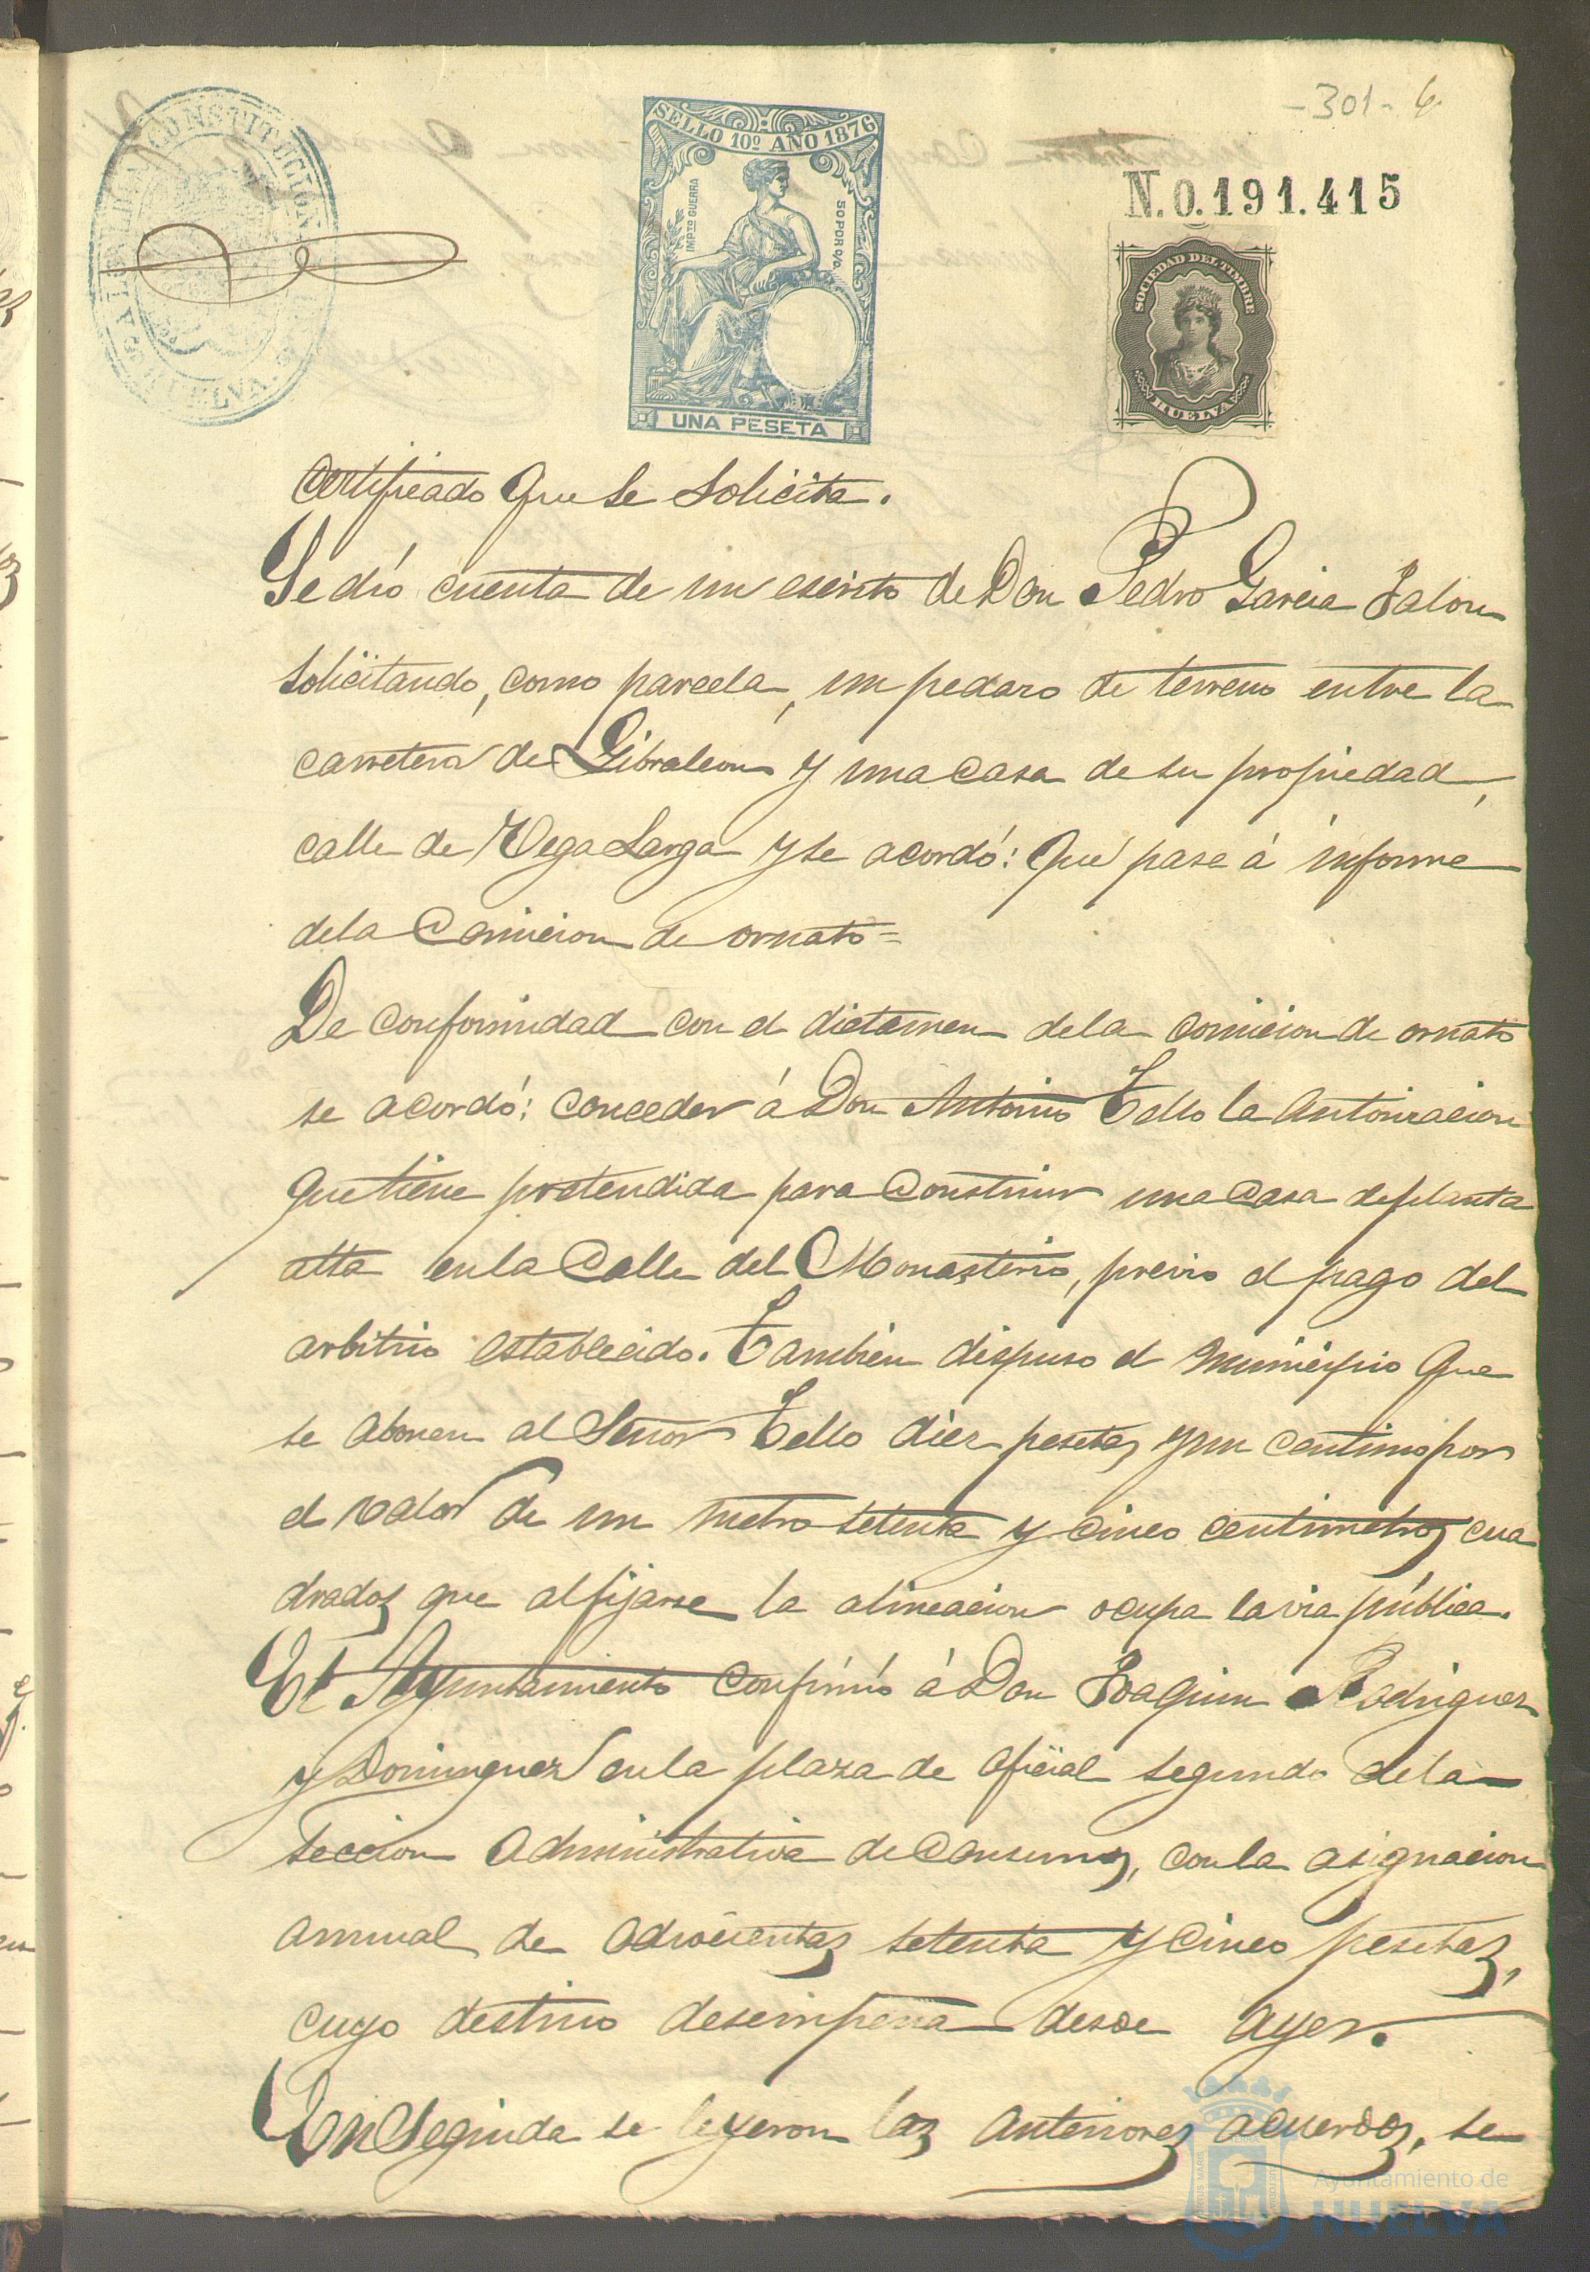 -301- 6.
ALCALDIA CONSTITUCIONAL
HUELVA.
SELLO 10º AÑO 1876
IMPTO GUERRA
50 POR O/O.
UNA PESETA
N.0.191.415
SOCIEDAD DEL TIMBRE
HUELVA
Certificado que se solicita.
Se dió cuenta de un escrito de Don Pedro Garcia Jalon
solicitando, como parcela, un pedazo de terreno entre la
carretera de Gibraleon y una casa de su propiedad,
calle de Vega Larga y se acordó: Que pase á informe
de la Comicion de ornato=
De conformidad con el dictamen de la comicion de ornato
se acordó: conceder á Don Antonio Tello la autorizacion
que tiene pretendida para construir una casa de planta
alta en la Calle del Monasterio, previo el pago del
arbitrio establecido. Tambien dispuso el Municipio que
se abonen al Señor Tello diez pesetas y un centimo por
el valor de un metro setenta y cinco centimetros cua
drados que al fijarse la alineacion ocupa la via pública.
El Ayuntamiento confirió á Don Joaquin Rodriguez
y Dominguez en la plaza de oficial segundo de la
seccion administrativa de consumos, con la asignacion
annual de odiocientas setenta y cinco pesetas,
cuyo destino desempeña desde ayer.
En seguida se leyeron los anteriores acuerdos, se
Ayuntamiento de
HUELVA